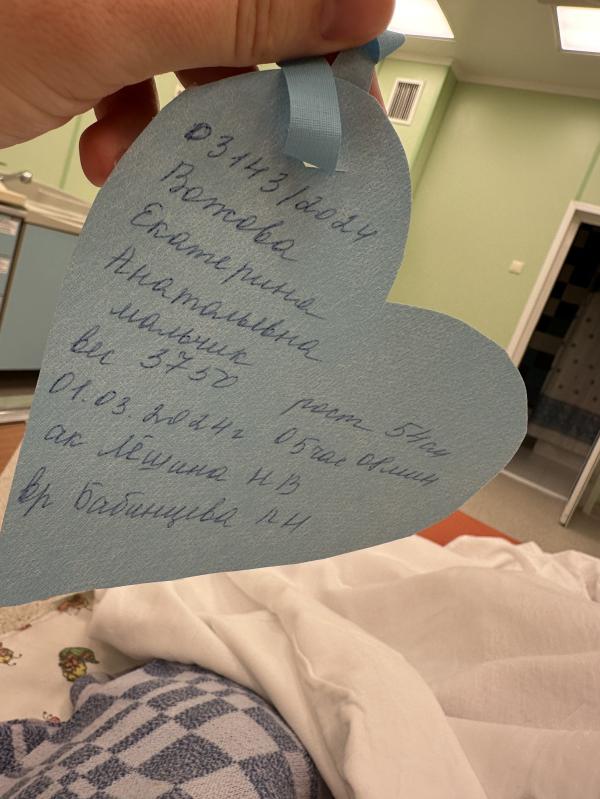 03143/2024
Вожова
Екатерина
Анатольевна
мальчик
вес 3750 рост 54см
01.03.2024г 05час 08мин
ак Лёшина НВ
вр Бабинцева ЛН